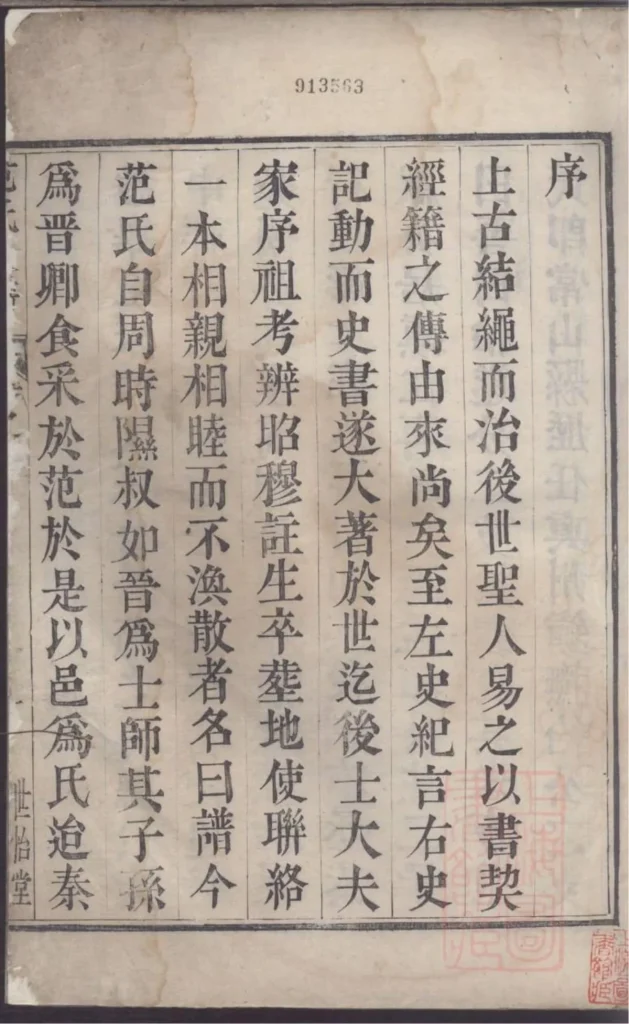 913563
序
上古結繩而治後世聖人易之以書契
經籍之傳由來尚矣至左史紀言右史
記動而史書遂大著於世迄後士大夫
家序祖考辨昭穆註生卒塟地使聯絡
一本相親相睦而不渙散者名曰譜今
范氏自周時隰叔如晉爲士師其子孫
爲晉卿食采於范於是以邑爲氏迨秦
范氏
世怡堂